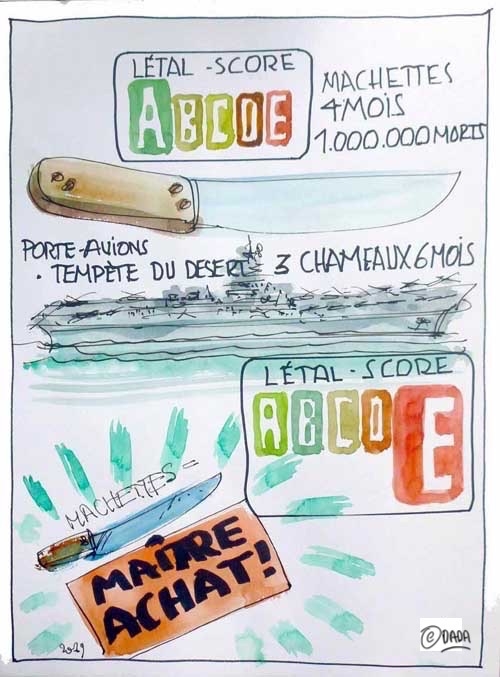 LÉTAL - SCORE
ABCDE
MACHETTES
4 MOIS
1.000.000 MORTS
PORTE-AVIONS
. TEMPÈTE DU DESERT 3 CHAMEAUX 6 MOIS
LÉTAL - SCORE
ABCDE
MACHETTES =
MAÎTRE
ACHAT!
©DADA